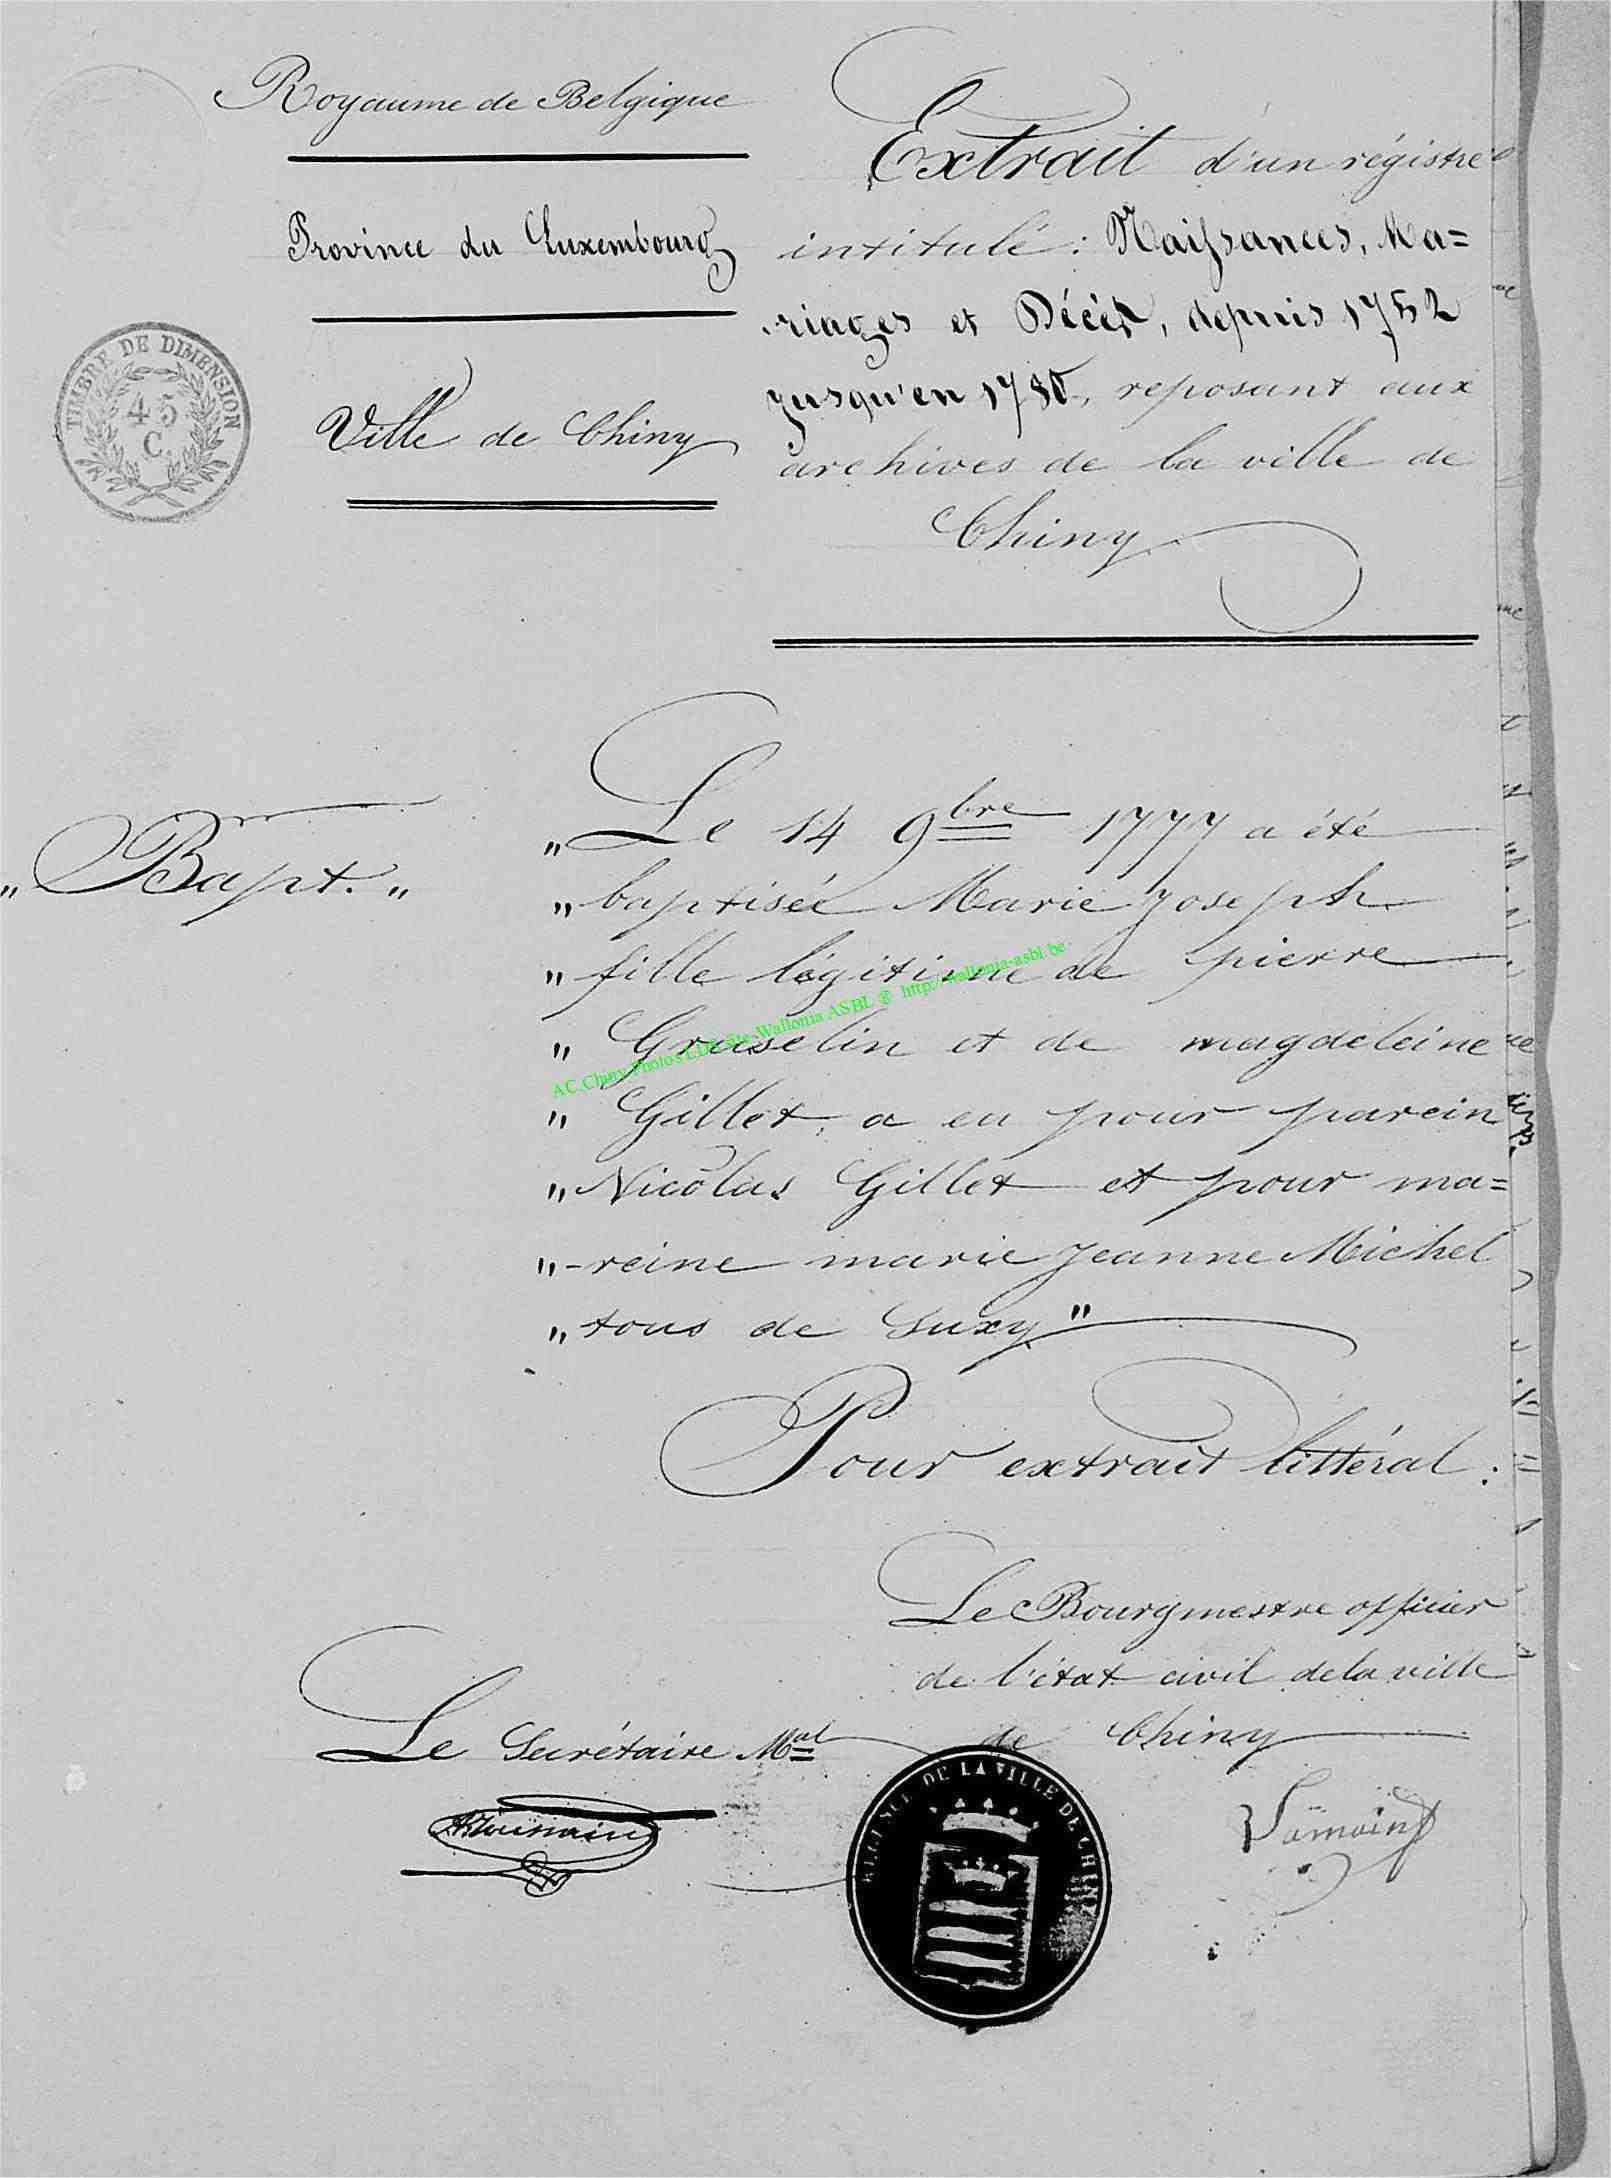 Royaume de Belgique
Province du Luxembourg
Ville de Chiny
TIMBRE DE DIMENSION
45
C.
Extrait d'un régistre
intitulé: Naissances, Ma=
riages et Décès, depuis 1752
jusqu'en 1780, reposant aux
archives de la ville de
Chiny
„ Bapt. „
„ Le 14 9bre 1777 a été
„ baptisée Marie Joseph
„ fille légitime de pierre
„ Graselin et de magdeleine
„ Gillet, a eu pour parein
„ Nicolas Gillet et pour ma=
„ -reine marie Jeanne Michel
„ tous de Suxy "
AC.Chiny Photo's LDR site-Wallonia ASBL ® http://wallonia-asbl.be
Pour extrait littéral:
Le Bourgmestre officier
de l'état civil de la ville
de Chiny
Le Secrétaire Mal
REGENCE DE LA VILLE DE CHINY